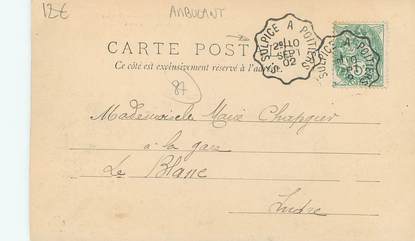 12€
AMBULANT
CARTE POST
Ce côté est exclusivement réservé à l'adr
ST SULPICE A POITIERS
10
SEPT
02
SULPICE A POITIERS
87
Mademoiselle Marie Chapgier
à la gare
Le Blanc
Indre